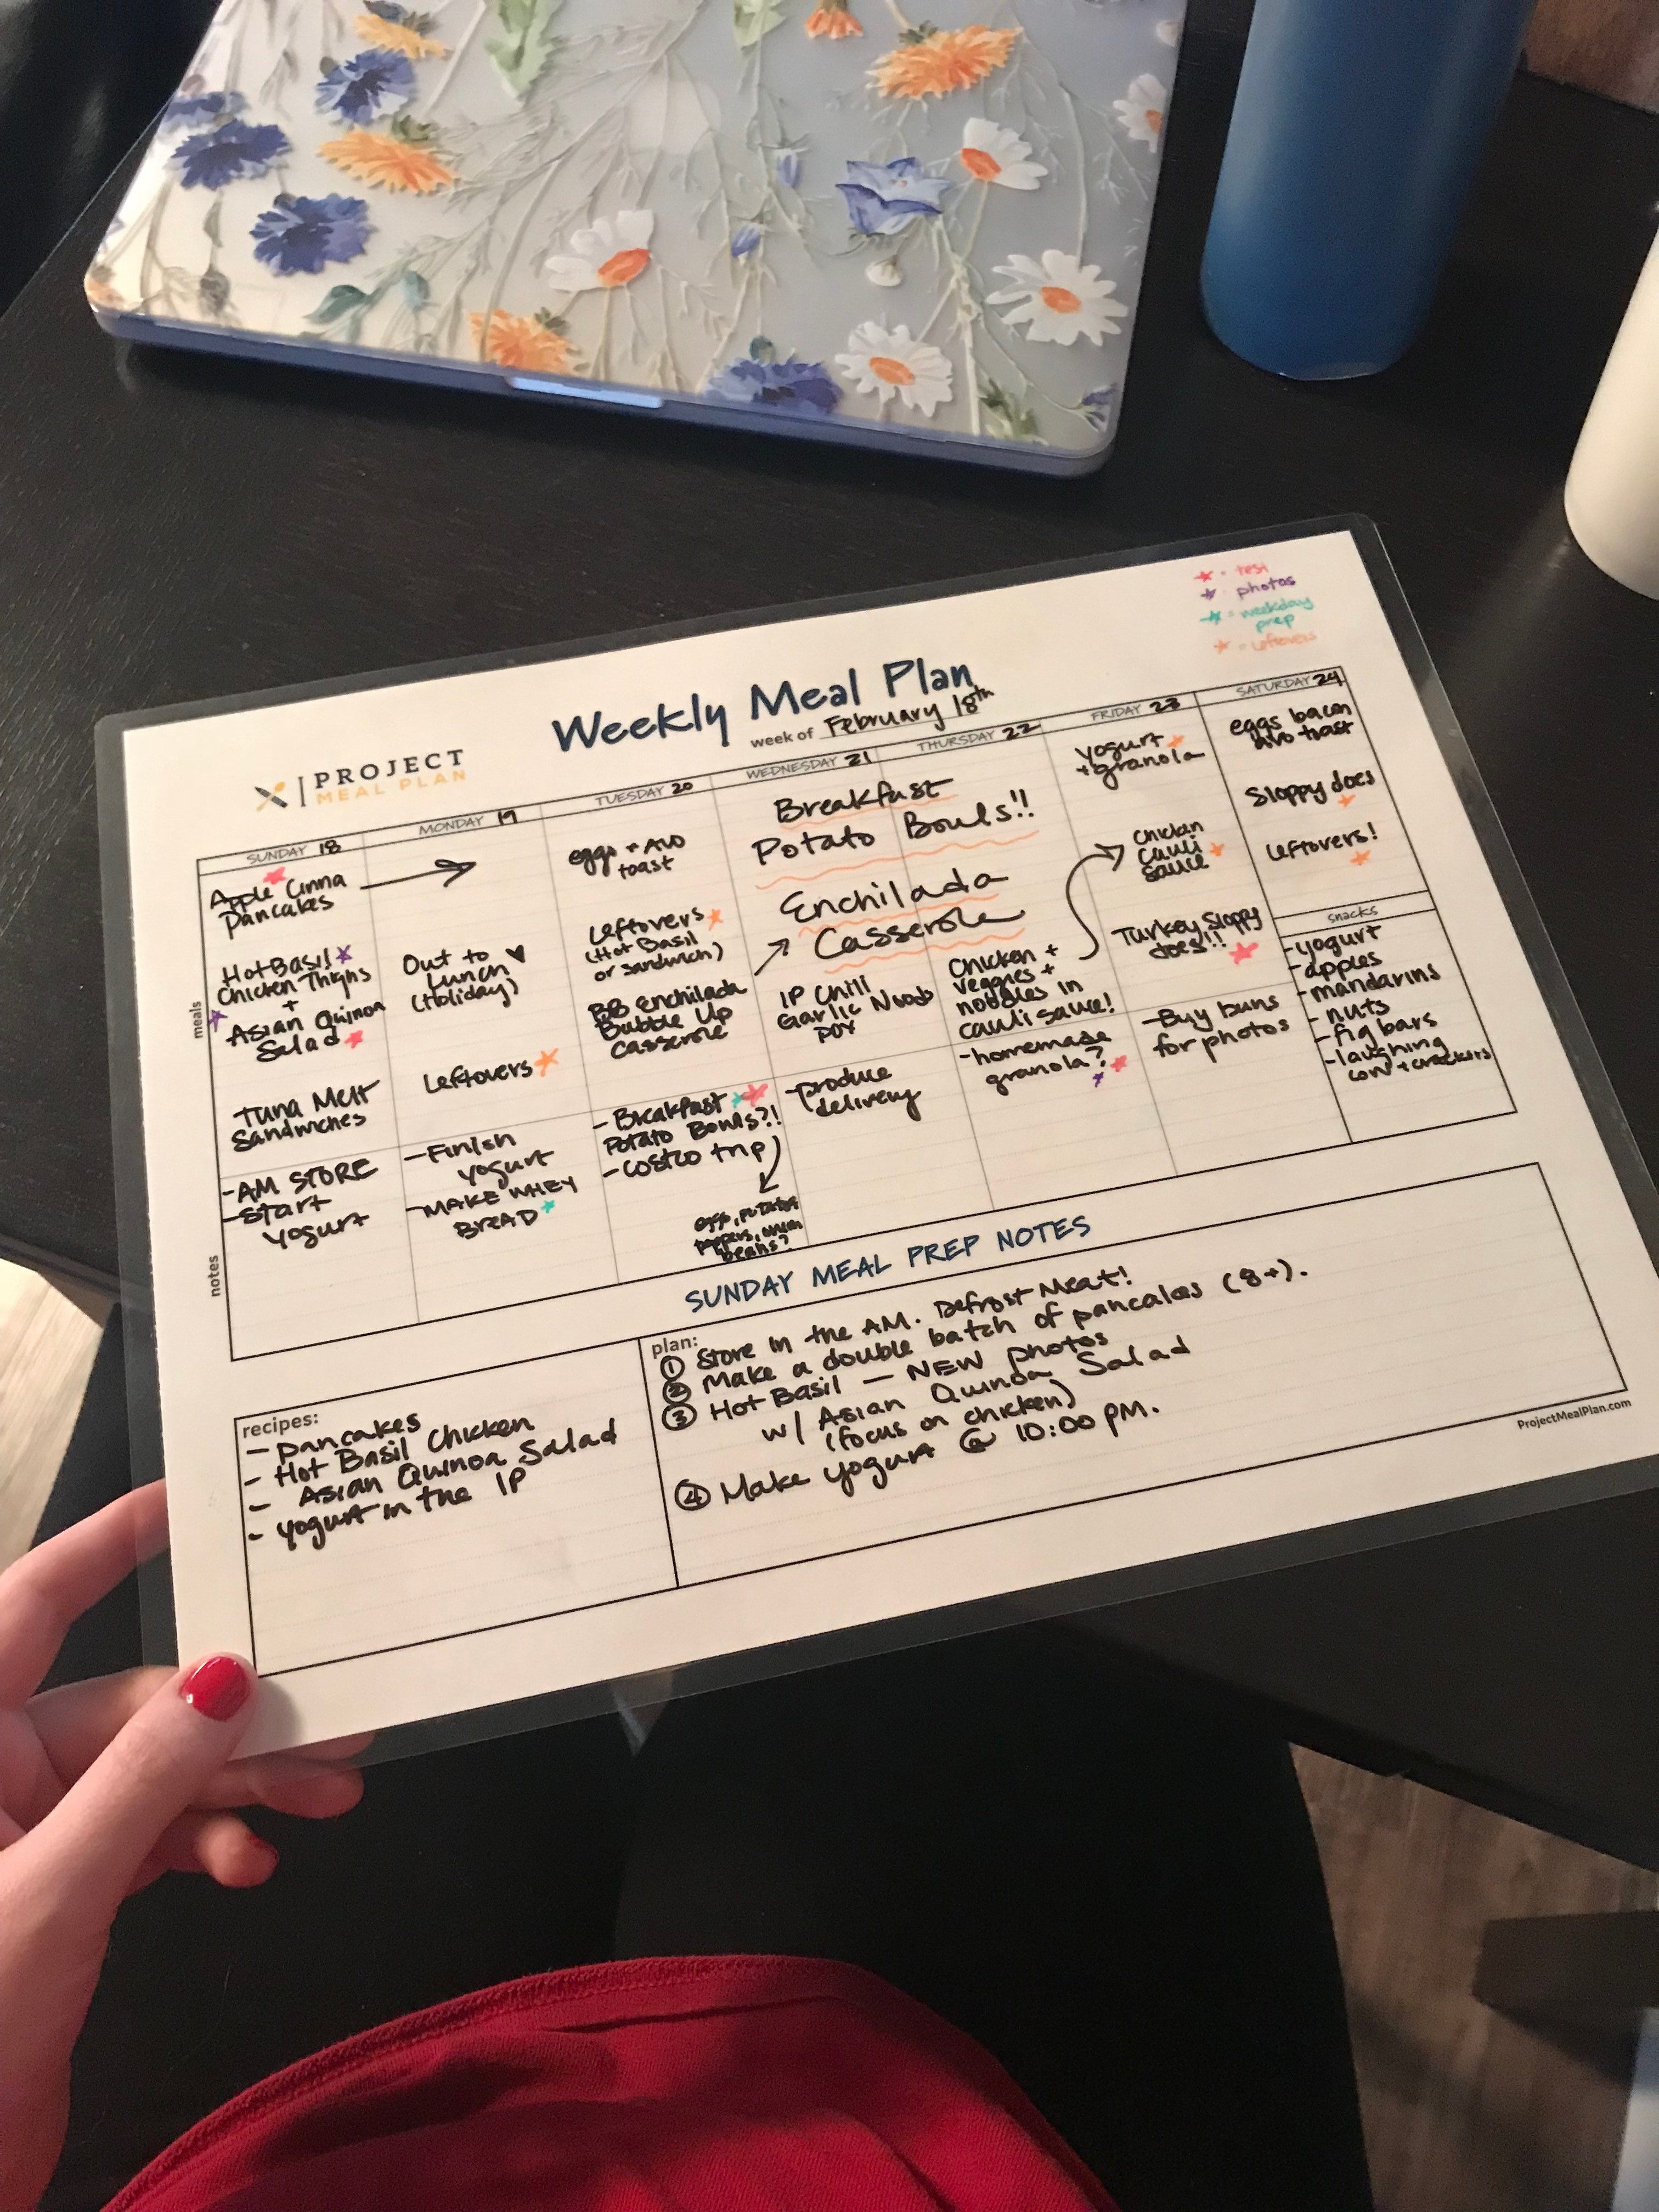 ★ = test
★ = photos
★ = weekday
prep
★ = leftovers
PROJECT
MEAL PLAN
Weekly Meal Plan
week of February 18th
SUNDAY 18
Apple Cinna
Pancakes
Hot Basil
Chicken Thighs
+
Asian Quinoa
Salad
Tuna Melt
Sandwiches
-AM STORE
-Start
yogurt
MONDAY 19
Out to
Lunch ♥
(Holiday)
Leftovers
-Finish
yogurt
-MAKE WHEY
BREAD
TUESDAY 20
eggs + AVO
toast
Leftovers
(Hot Basil
or sandwich)
BB Enchilada
Bubble Up
Casserole
-Breakfast
Potato Bowls?!
-Costco trip
eggs, potatoes
peppers, onion
beans?
WEDNESDAY 21
THURSDAY 22
Breakfast
Potato Bowls!!
Enchilada
Casserole
IP Chili
Garlic Noods
POY
-produce
delivery
Chicken +
veggies +
noodles in
cauli sauce!
-homemade
granola?
FRIDAY 23
yogurt
+granola
Chicken
cauli
sauce
Turkey Sloppy
does!!!
-Buy buns
for photos
SATURDAY 24
eggs bacon
avo toast
Sloppy does
leftovers!
snacks
-yogurt
-apples
-mandarins
-nuts
-fig bars
-laughing
cow + crackers
meals
notes
SUNDAY MEAL PREP NOTES
recipes:
- pancakes
- Hot Basil Chicken
- Asian Quinoa Salad
- yogurt in the IP
plan:
① Store in the AM. Defrost Meat!
② Make a double batch of pancakes (8+).
③ Hot Basil — NEW photos
w/ Asian Quinoa Salad
(focus on chicken)
④ Make yogurt @ 10:00 PM.
ProjectMealPlan.com